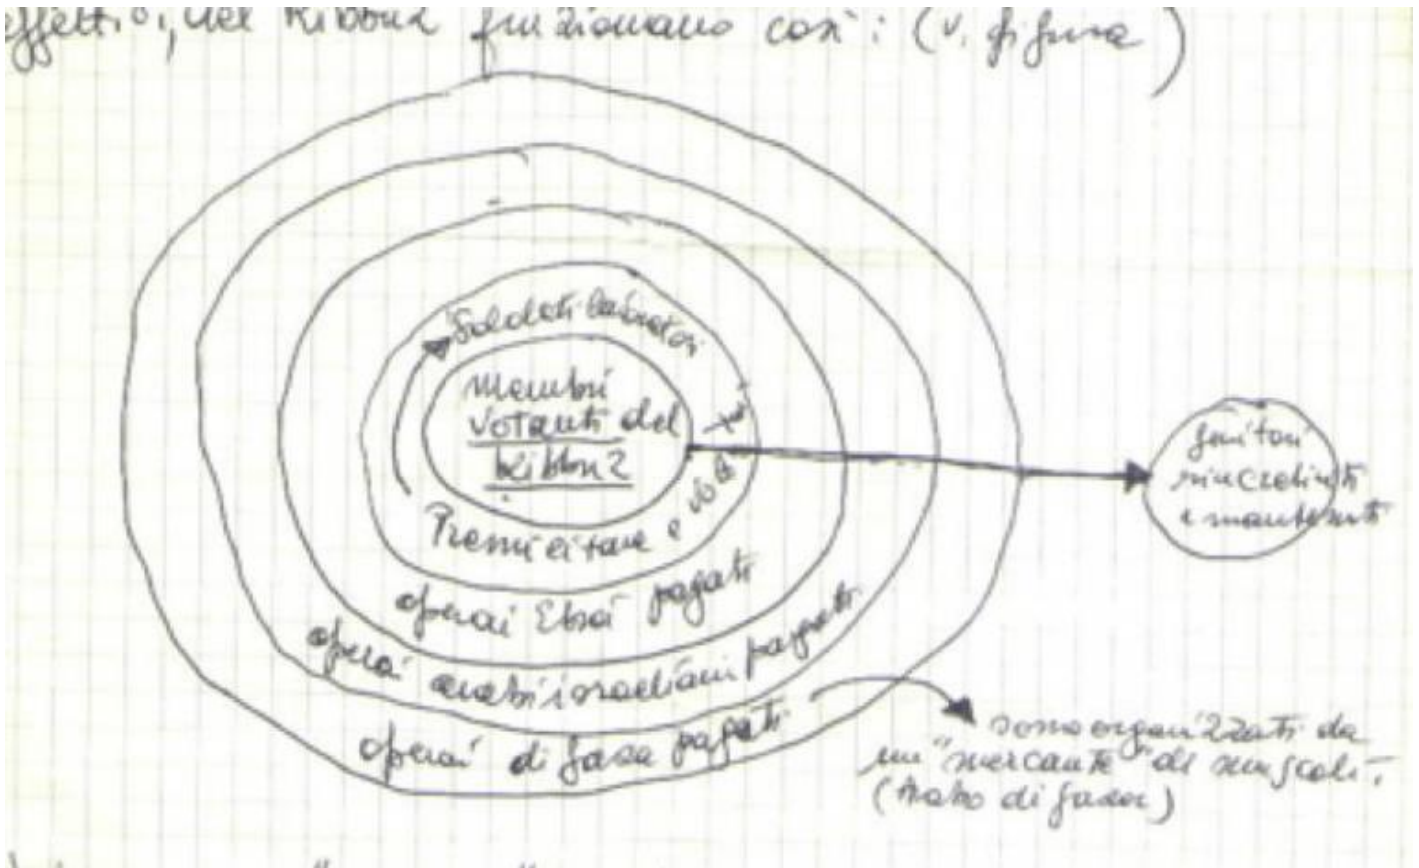 effetti, nel Kibbuz funzionano così: (v. figura)
Soldati lavoratori
Membri
votanti del
Kibbuz
e
operai Ebrei pagati
operai arabi israeliani pagati
operai di gaza pagati
genitori
rincretiniti
e mantenuti
sono organizzati da
un "mercante" di muscoli.
(Arabo di gaza)